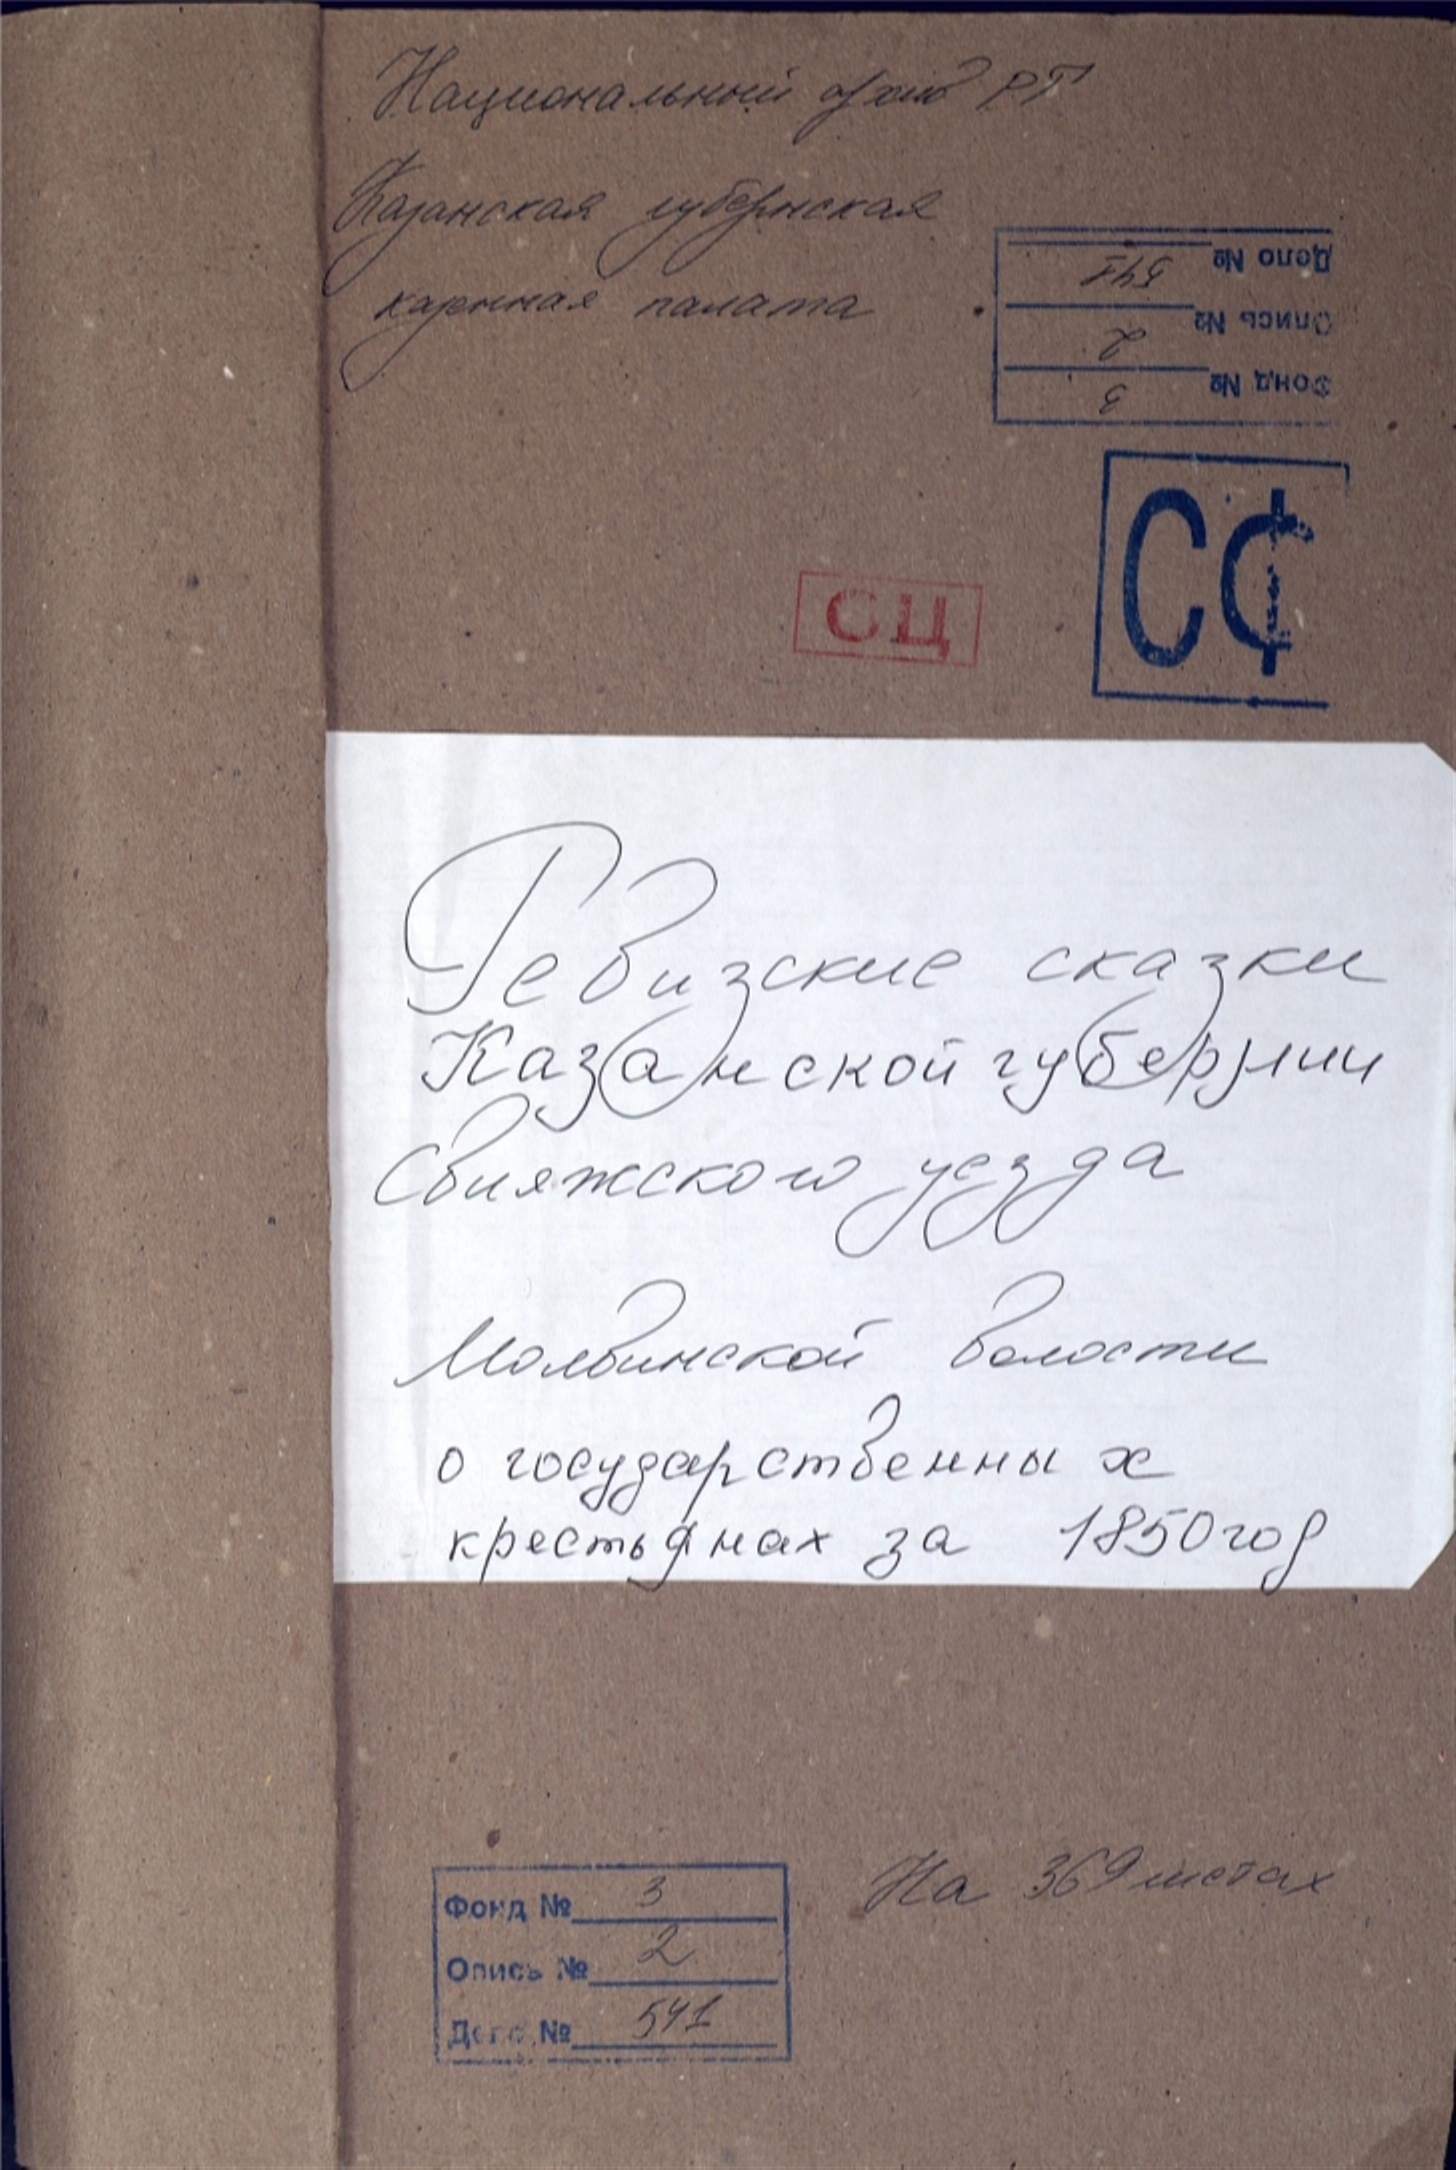 Национальный архив РТ
Казанская губернская
казенная палата
Дело № 541
Опись № 2
Фонд № 3
СФ
СЦ
Ревизские сказки
Казанской губернии
Свияжского уезда
Молвинской волости
о государственных
крестьянах за 1850 год
На 369 листах
Фонд № 3
Опись № 2
Дело № 541